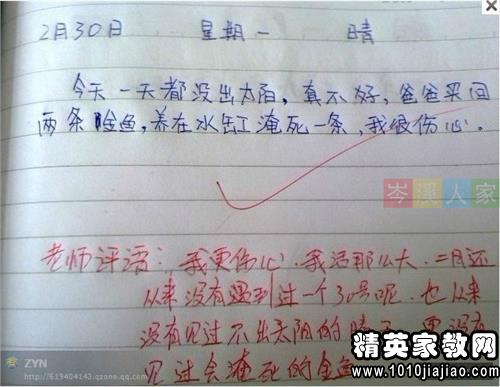 2月30日 星期一 晴
今天一天都没出太阳，真不好，爸爸买回
两条金鱼，养在水缸淹死一条，我很伤心。
岑溪人家
老师评语：我更伤心．我活那么大．二月还
从来没有遇到过一个30号呢．也从来
没有见过不出太阳的晴天．更没有
见过会淹死的金鱼
ZYN
http://619404143.qzone.qq.com
精英家教网
www.1010jiajiao.com